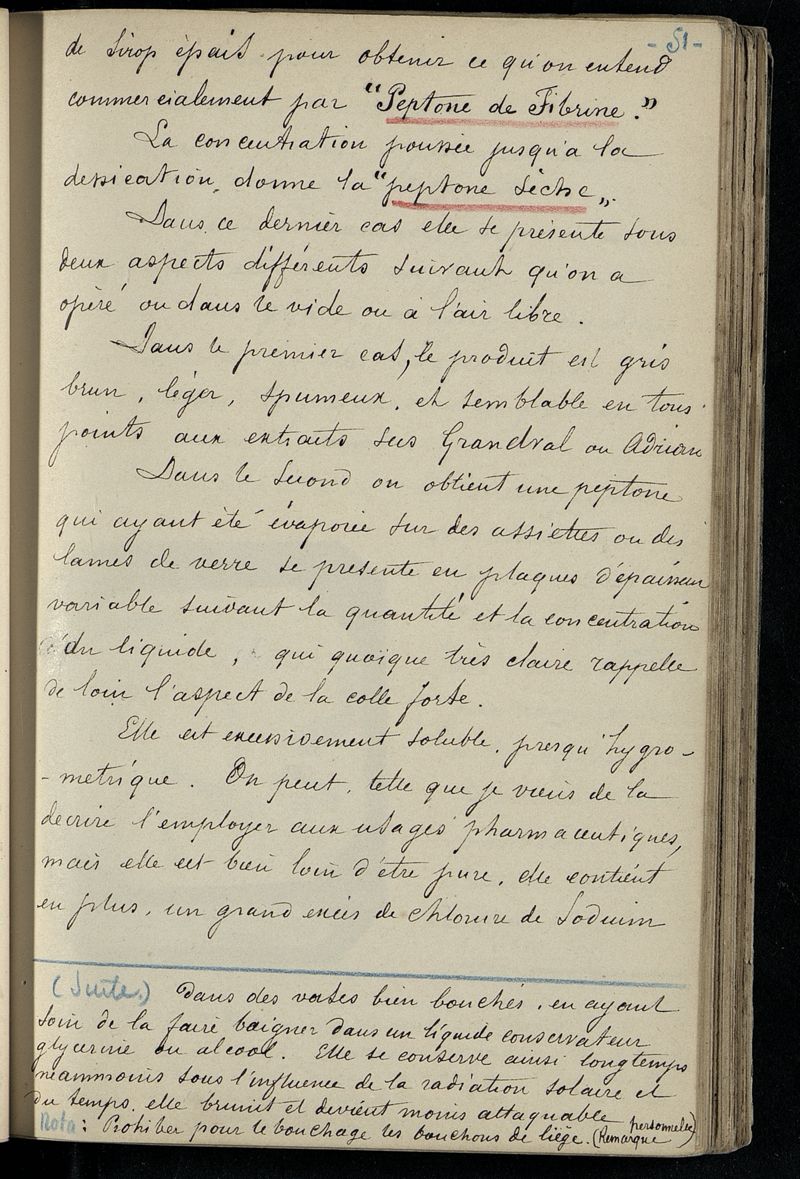 - 51 -
de Sirop épais pour obtenir ce qu'on entend
commercialement par "Peptone de Fibrine."
La concentration poussée jusqu'a la
dessication, donne la "peptone sèche".
Dans ce dernier cas elle se présente sous
deux aspects différents suivant qu'on a
opéré ou dans le vide ou à l'air libre.
Dans le premier cas, le produit est gris
brun, léger, spumeux, et semblable en tous
points aux extraits secs Grandval ou Adrian
Dans le second on obtient une peptone
qui ayant été évaporée sur des assiettes ou des
lames de verre se présente en plaques d'épaisseur
variable suivant la quantité et la concentration
du liquide, qui quoique très claire rappelle
de loin l'aspect de la colle forte.
Elle est excessivement soluble, presqu'hygro-
-metrique. On peut, telle que je viens de la
decrire l'employer aux usages pharmaceutiques,
mais elle est bien loin d'être pure, elle contient
en plus, un grand excès de chlorure de Sodium
(Suite.) Dans des vases bien bouchés, en ayant
soin de la faire baigner dans un liquide conservateur
glycerine ou alcool. Elle se conserve ainsi longtemps
neammoins sous l'influence de la radiation solaire et
du temps, elle brunit et devient moins attaquable
Nota: Prohiber pour le bouchage les bouchons de liège. (Remarque personnelle)